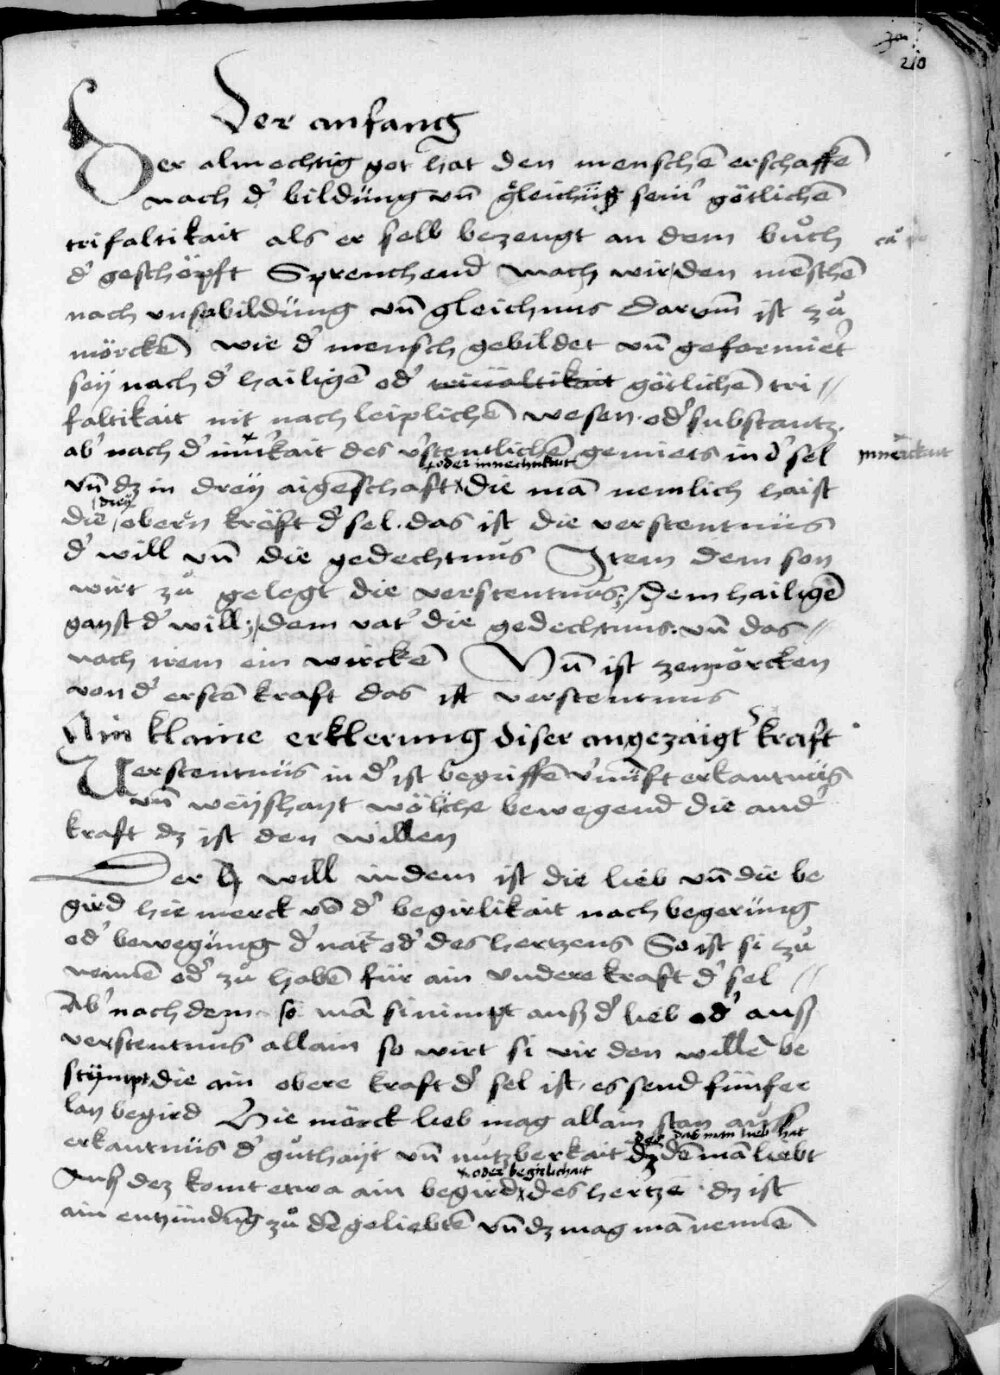 210
Der anfang
Der almechtig got hat den menschē erschaffē
nach d' bildung vn̄ gleichnus sein' götlichē
trifaltikait als er selb bezeugt an dem bůch
d' geschöpft Sprechend mach wir den mēschē
nach vnser bildung vn̄ gleichnus Darum̄ ist zů
mörckē wie d' mensch gebildet vn̄ geformiet
seÿ nach d' hailigē od' götlichē tri//
faltikait nit nach leiplichē wesen od' substantz
ab' nach d' innikait des v'stentlichē gemiets in d' sel innerckait
+oder innerchkait
vn̄ dz in dreÿ aigenschaft + die mā nemlich haist
dreÿ
die obern kröft d' sel. das ist die verstentnüs
d' will vn̄ die gedechtnus Item dem son
wirt zů gelegt die verstentnus; dem hailigē
gayst d' will; dem vat' die gedechtnus. vn̄ das //
nach irem ein wirckē Nun ist zemörcken
von d' erstē kraft das ist verstentnus
Ain klaine erklerung diser angezaigt kraft
Verstentnüs in d' ist begriffē v'nunft erkantnüs
vn̄ weÿshayt wölche bewegend die and'
kraft dz ist den willen
Der will in dem ist die lieb vn̄ die be
gird hie merck vō d' begirlikait nach begerung
od' bewegung d' nat' od' des hertzens So ist si zů
nemē od' zů habē für ain vndere kraft d' sel //
Ab' nach dem so mā si nimpt auß d' lieb od' auß
verstentnus allain so wirt si vir den willē be
stÿmpt die ain obere kraft d' sel ist. es send fünfer
lay begird Hie mörck lieb mag allain stan auß
der das man lieb hat
erkantnüs d' gůthayt vn̄ nutzberkait dz dē mā liebt
+oder begirlichait
Auß dez komt etwa ain begird + des hertzē dz ist
ain entzündūg zů dē geliebtē vn̄ dz mag mā nemē